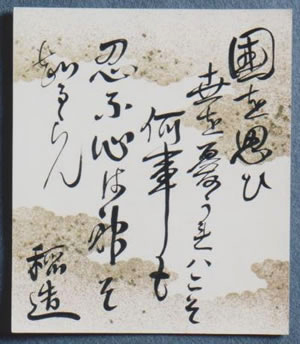 國を思ひ
世を憂うれハこそ
何事も
忍ふ心は神そ
知るらん
稲造